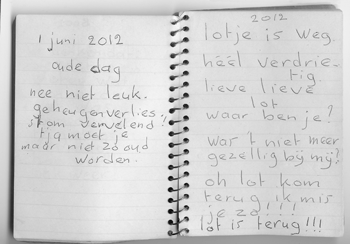 1 juni 2012
oude dag
nee niet leuk.
geheugenverlies.
stom vervelend!
tja moet je
maar niet zo oud
worden.
2012
lotje is weg.
héél verdrie-
tig
lieve lieve
lot
waar ben je?
war 't niet meer
gezellig bij mij?
oh lot kom
terug, ik mis
je zo!!!
lot is terug!!!